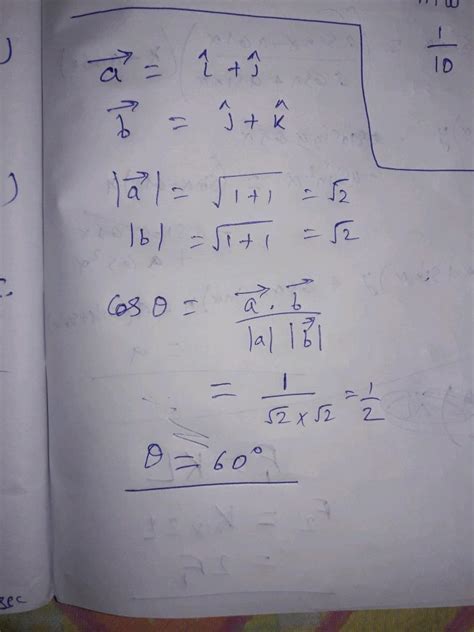 1/10
a⃗ = î + ĵ
b⃗ = ĵ + k̂
|a⃗| = √1+1 = √2
|b| = √1+1 = √2
cos θ = a⃗ . b⃗ / |a| |b⃗|
= 1 / √2 × √2 = 1/2
θ = 60°
sec